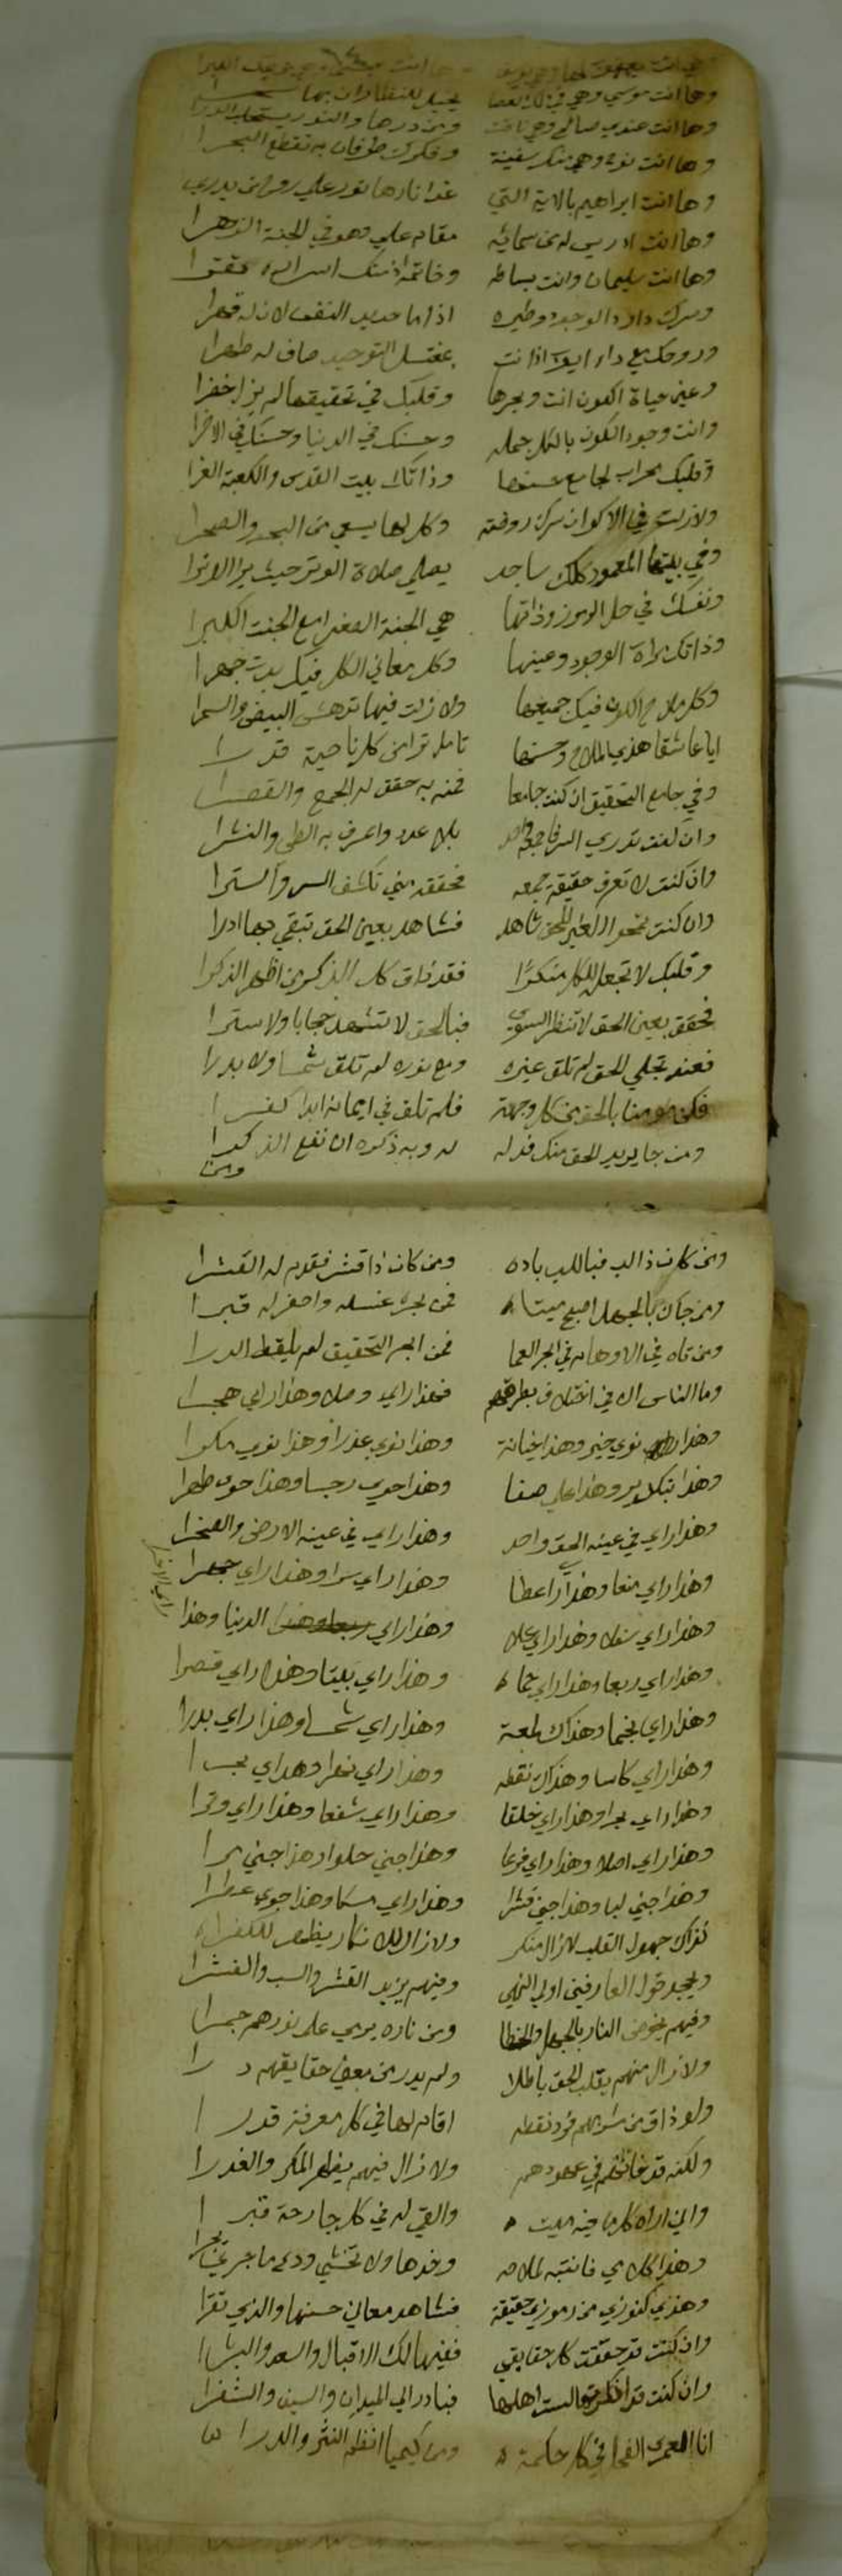 وها انت موسي وهي في ذاك العصا يخيل للنظار ان بها سحرا
وها انت عندي صالح وهي ناقت ومن درها والنور يستحلب الدرا
وها انت نوح وهي منك سفينة وفكرك طوفان به تقطع البحرا
وها انت ابراهيم بالاية التي غدا نارها نور علي
وها انت ادريس لدى سمائه مقام علي وهو في الجنة الزهرا
وها انت سليمان وانت بساطه وخاتمه اذ منك اسراره تقرا
وسرك داود الوجود وطيره اذا ما حديد النفس لان له قهرا
وروحك مع داء ايوب اذا نت بمغتسل التوحيد صاف له طهرا
وعين حياة الكون انت وبحرها وقلبك في تحقيقها لم يزل خضرا
وانت وجود الكون بالكل جمله وحسنك في الدنيا وحسنك في الاخرا
وقلبك محراب لجامع حسنها وذاتك بيت القدس والكعبة الغرا
ولازلت في الاكوان مركز روضته وكل لها يسعى من البحر والصحرا
وفي بيتها المعمور كلك ساجد يصلي صلاة الوتر حيث يرا الوترا
ونفسك في حل الرموز وذاتها هي الجنة الصغرا مع الجنت الكبرا
وذاتك مراة الوجود وعينها وكل معاني الكل فيك بدت جهرا
وكل ملاح الكون فيك جميعها ولا زلت فيها تعشق البيض والسمرا
ايا عاشقا هذي الملاح وحسنها تامل ترا من كل ناحية قدرا
وفي جامع التحقيق ان كنت جامعا فمنه به حقق له الجمع والقصرا
وان كنت تدري السر فاجمعه واحد بلا عدد واعرف به الطي والنشرا
وان كنت لا تعرف حقيقة جمعه فحققه مني تكشف السر والسترا
وان كنت نحو الغير للحق شاهد فشاهد بعين الحق تبقي بها ادرا
وقلبك لا تجعل للكل منكرا فقد ذاق كل الذكر من اظهر الذكرا
فحقق بعين الحق لا تنظر السوي فبالحق لا تشهد حجابا ولا سترا
فعند تجلي الحق لم تلق غيره ومع نوره لم تلق شمسا ولا بدرا
فكن مومنا بالحق من كل وجهة فلم تلق في ايمانه ابدا كفرا
ومن جا يريد الحق منك فدله له وبه ذكره ان نفع الذكرا
ومن
ومن كان ذا لب فباللب باده ومن كان ذا قشر فقدم له القشرا
ومن جان بالجهل اصبح ميتا فمن بحره غسله واحفر له قبرا
ومن تاه في الاوهام في البحر العما فمن ابحر التحقيق لم يلقط الدرا
وما الناس الا في اختلاف بطرقهم فهذا راي وصلا وهذا راي هجرا
وهذا نوي خير وهذا خيانة وهذا نوي عذرا وهذا نوي مكرا
وهذا بتكدير وهذا علي صفا وهذا حوي رجسا وهذا حوي طهرا
وهذا راي في عينه الحق واحد وهذا راي في عينه الارض والصخرا
وهذا راي منعا وهذا راي عطا وهذا راي سرا وهذا راي جهرا
وهذا راي سفلا وهذا راي علا وهذا راي الدنيا وهذا راي الاخرا
وهذا راي ربعا وهذا راي حما وهذا راي بيتا وهذا راي قصرا
وهذا راي نجما وهذاك لمعة وهذا راي شمسا وهذا راي بدرا
وهذا راي كاسا وهذاك نقطه وهذا راي نهرا وهذا راي بحرا
وهذا راي بحرا وهذا راي خلقا وهذا راي شفعا وهذا راي وترا
وهذا راي اصلا وهذا راي فرعا وهذا جني حلوا وهذا جني مرا
وهذا جني لبا وهذا جني قشرا وهذا راي مسكا وهذا حوي عطرا
تراك جهول القلب لازال منكر ولازال للانكار يظهر للكفرا
ويجحد قول العارفين اولي النهي وفيهم يزيد القشر والسب والفشرا
وفيهم يخوض النار بالجهل والخطا ومن ناره يرمي علي نورهم جمرا
ولازال منهم يقلب الحق باطلا ولم يدر من بعض حقايقهم درا
ولو ذاق من شربهم فرد نقطه اقام لها في كل معرفة قدرا
ولكنه قد خانهم في عهودهم ولازال فيهم يظهر المكر والغدرا
واني اراه كلما فيه ميت والقي له في كل جارحة قبرا
وهذا كلامي فانتبه لملامه وخدها ولا تخشي ودع ما جري بحرا
وهذي كنوزي من رموزي حقيقة فشاهد معاني حسنها والذي تقرا
وان كنت قد حققت كل حقايقي ففيها لك الاقبال والسعد والبشرا
وان كنت قد انكرتها لست اهلها فبادر الي الميدان والسيف والشفرا
انا العمري الفحل في كل حكمة ومن كيميا انظم النثر والدرا